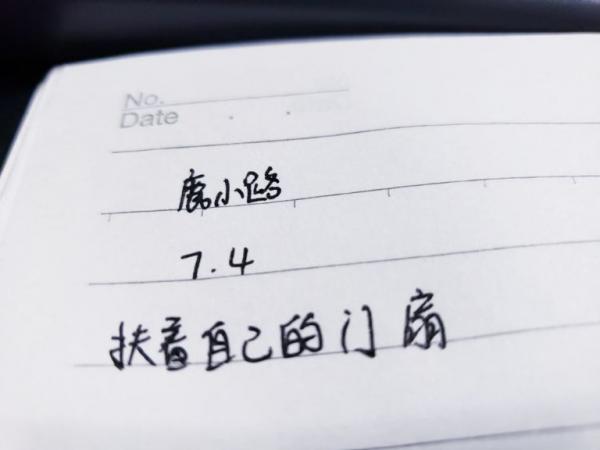 No.
Date
鹿小路
7.4
扶着自己的门扇